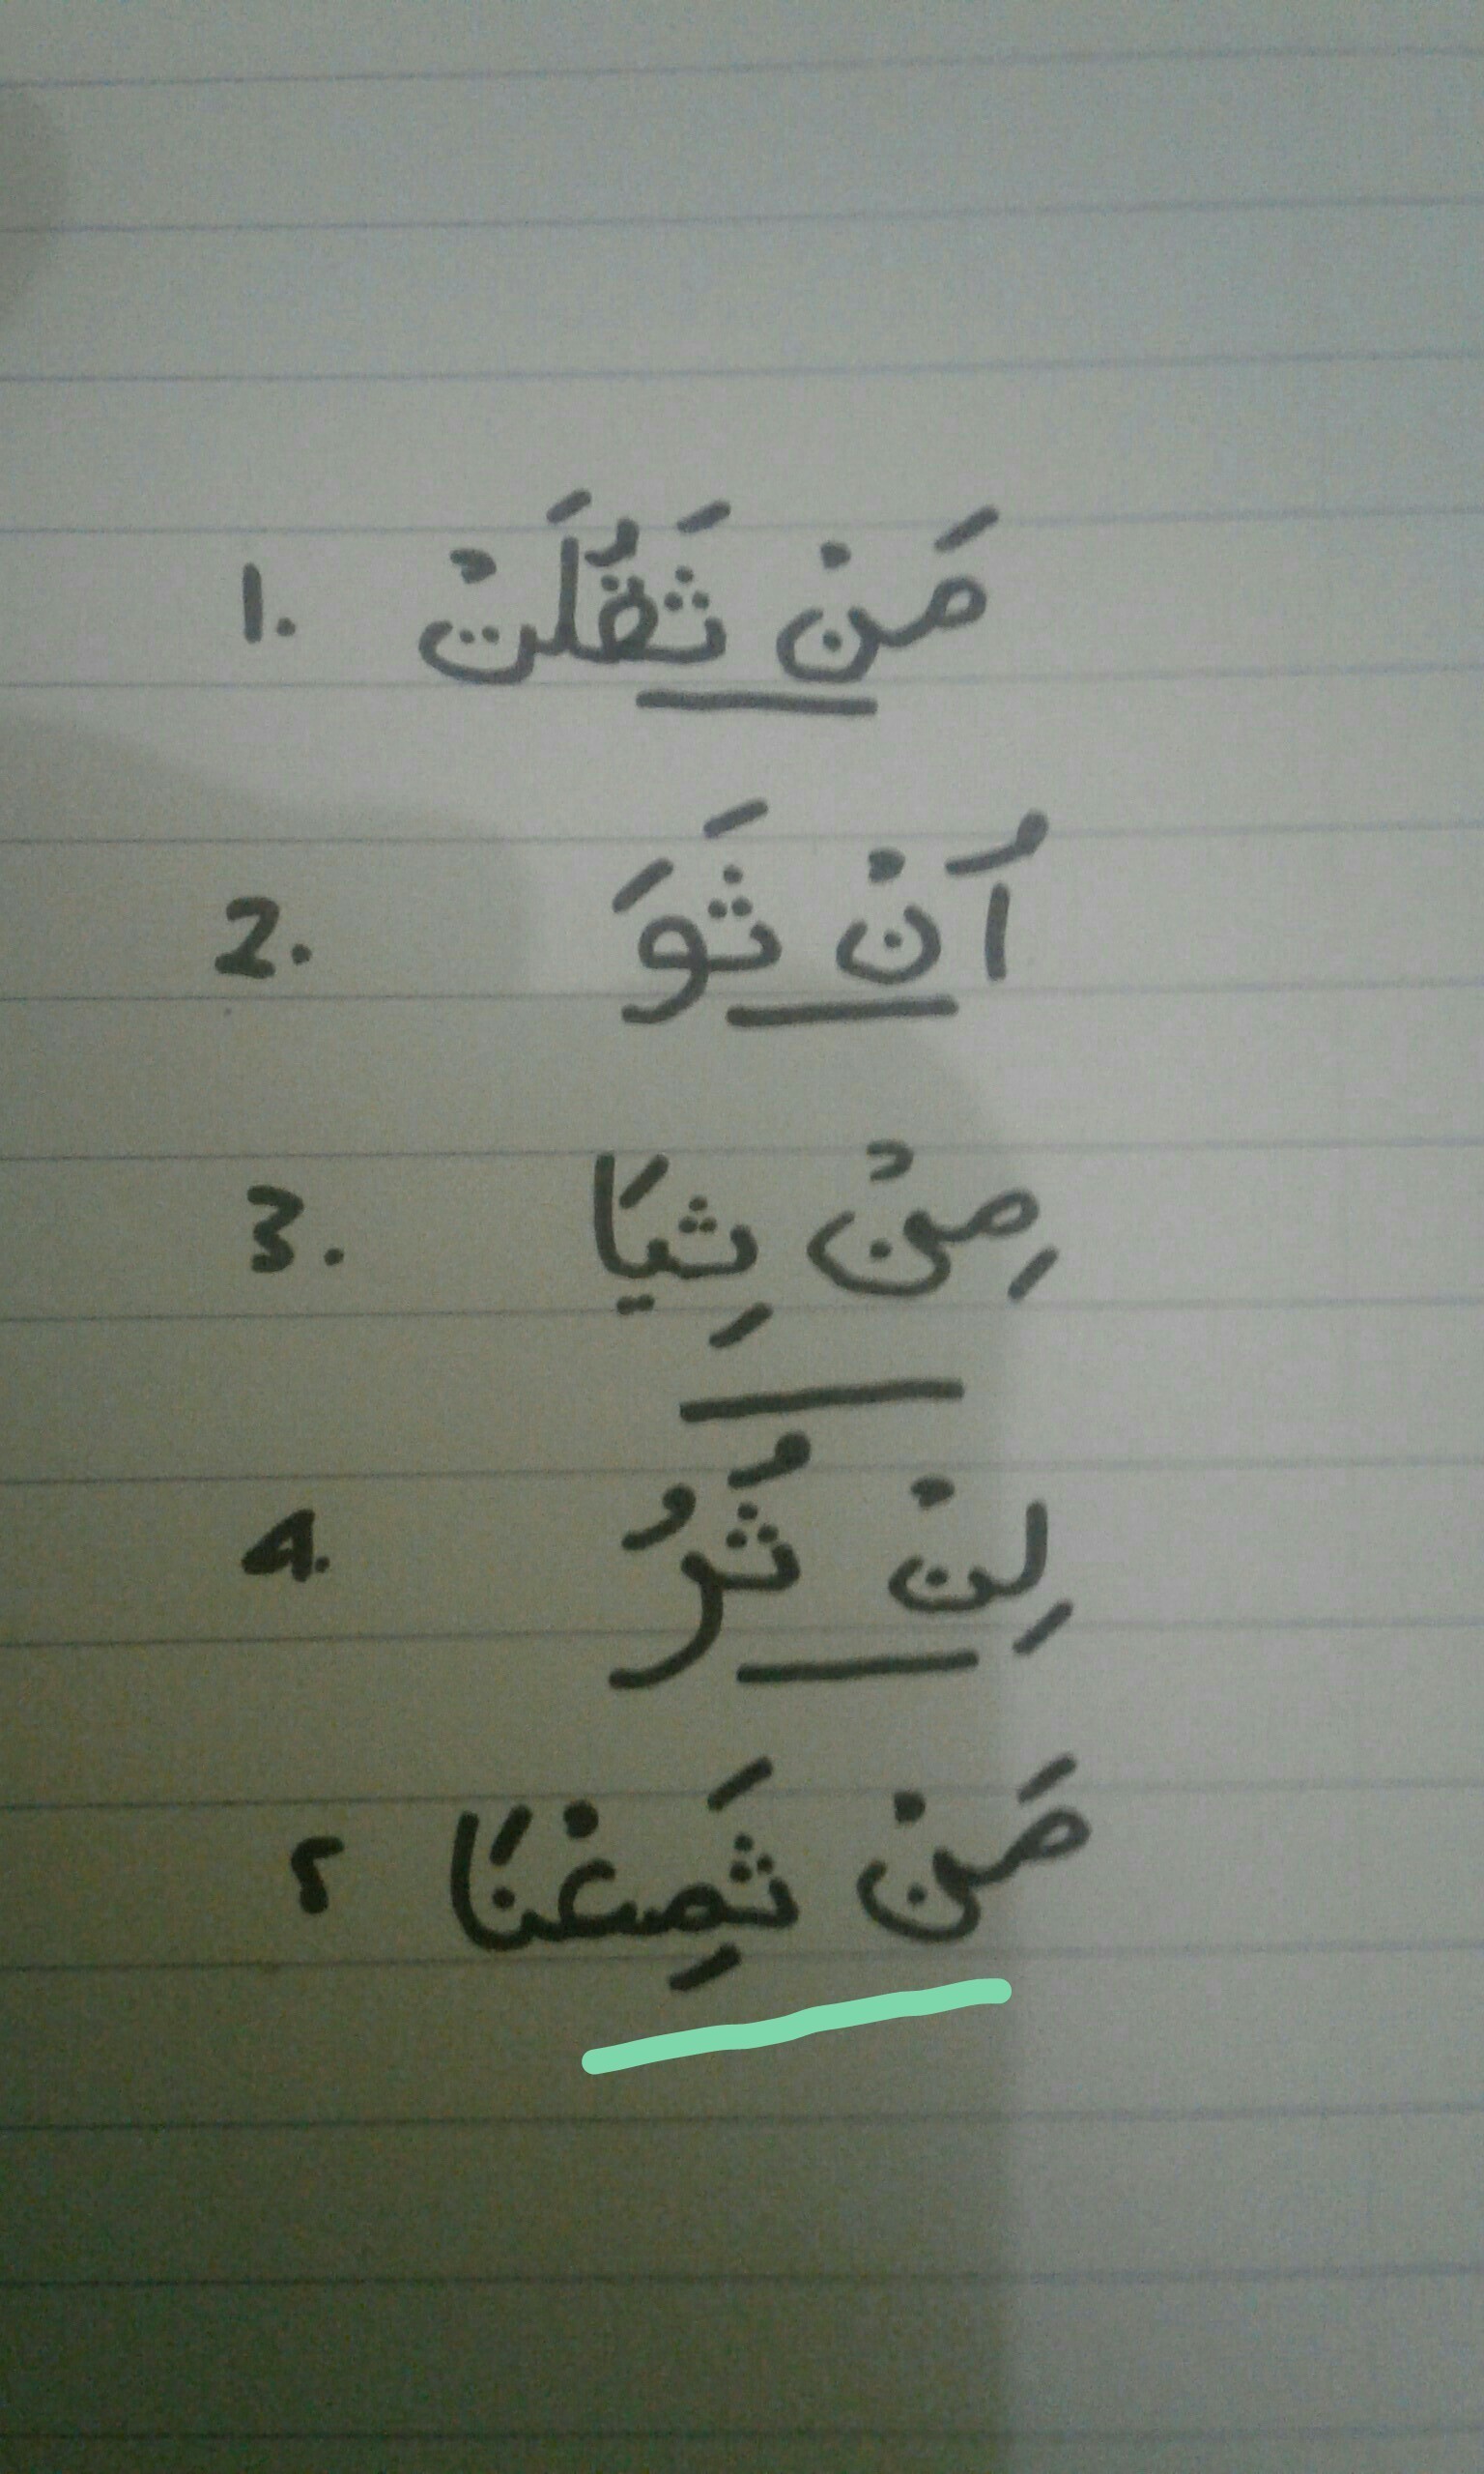 1. مَنْ ثَقُلَتْ
2. اُنْ ثَوَ
3. مِنْ ثِيَا
4. لِنْ ثُرُ
5 مَنْ ثَمِعْنَا